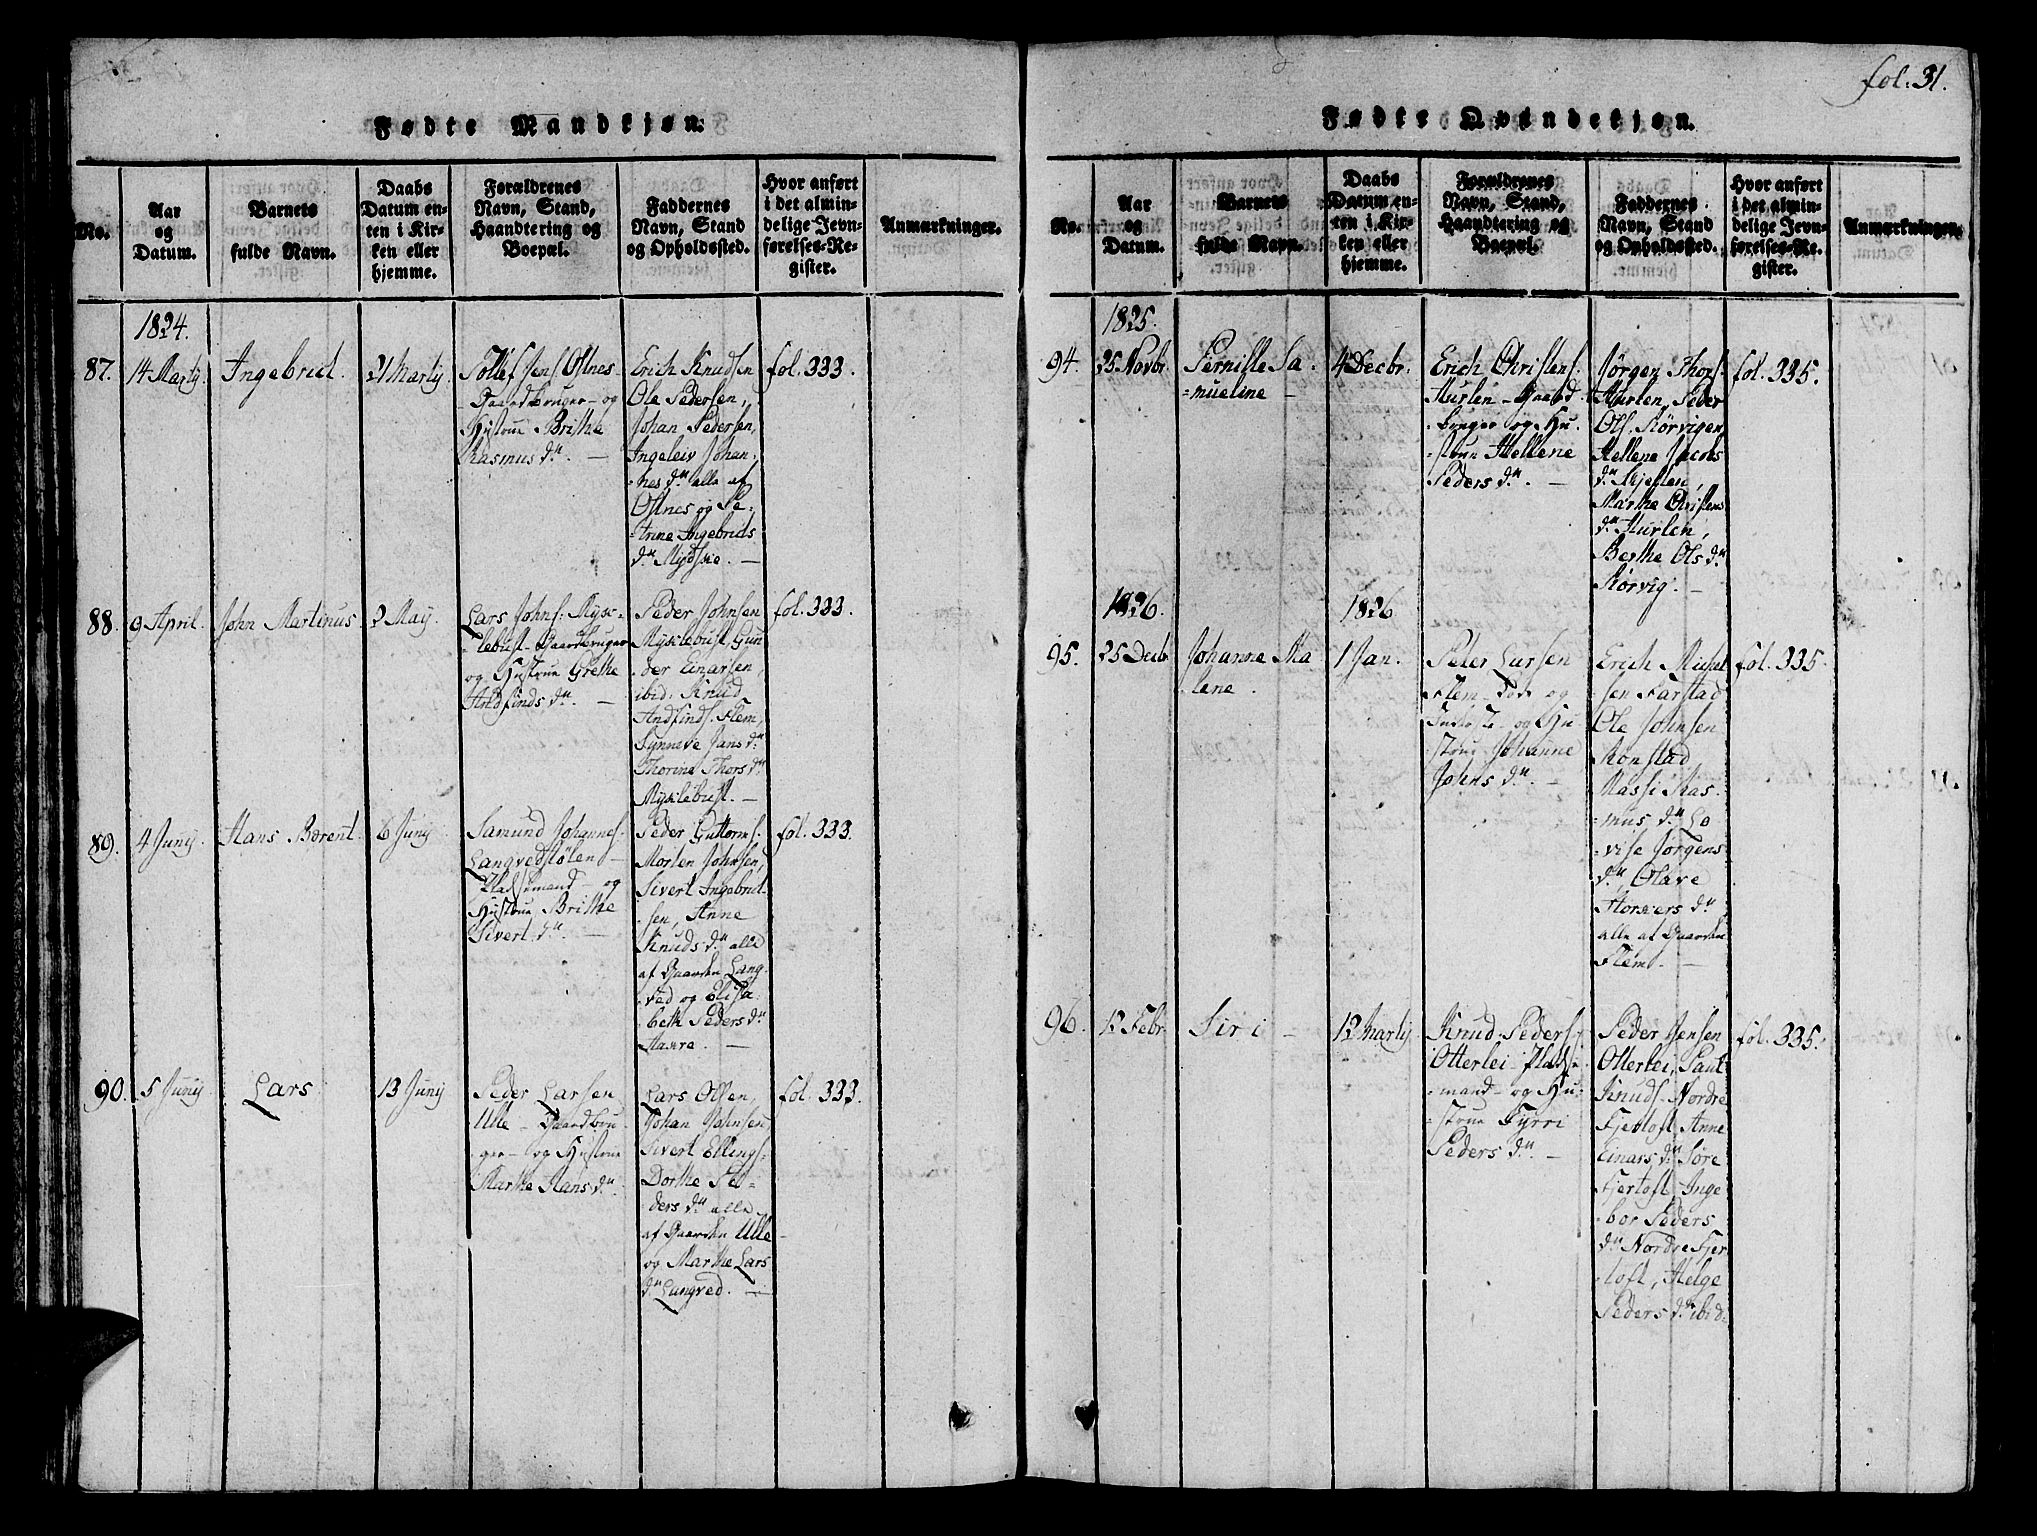 fol. 31.
Fødte Mandkjøn.
No.
Aar
og
Datum.
Barnets
fulde Navn.
Daabs
Datum en-
ten i Kir-
ken eller
hjemme.
Forældrenes
Navn, Stand,
Haandtering og
Boepæl.
Faddernes
Navn, Stand
og Opholdssted.
Hvor anført
i det almin-
delige Jevn-
førelses-Re-
gister.
Anmærkninger.
1824.
87.
14 Martij.
Ingebrict.
21 Martij.
Tollef Jens. Oltnes
Gaardbruger - og
Hustrue Brithe
Rasmus dr. -
Erich Knudsen
Ole Pedersen,
Johan Pedersen,
Ingeleiv Johan-
nes dr. alle af
Oltnes og
Anne Ingebrigts
dr. -
fol. 333.
88.
9 April.
John Martinus
2 May.
Lars Johns. Mykle-
lebust - Gaardbruger
og Hustrue Grethe
Andfinds dr. -
Peder Johnsen
Myklebust, Gun
der Einarsen,
ibid. Knud
Andfinds. Flem,
Synneve Jans dr.
Thorine Thors dr.
Myklebust. -
fol. 333.
89.
4 Junij.
Hans Berent.
6 Junij
Samund Johannes.
Langvedstølen -
Pladsemand - og
Hustrue Brithe
Sivert dr. -
Peder Guttorms.
Morten Johnsen,
Sivert Ingebrict
sen, Anne
Knuds dr. alle
af Gaarden Lang
ved og Elisa
beth Peders dr.
-
fol. 333.
90.
5 Junij
Lars
13 Junij
Peder Larsen
Ulle - Gaardbru
ger - og Hustrue
Marthe Hans dr.
Lars Olsen,
Johan Johnsen,
Sivert Ellings.
Dorthe Pe-
ders dr. alle
af Gaarden Ulle
og Marthe Lars
dr. Langved. -
fol. 333.
Fødte Qvindekjøn.
No.
Aar
og
Datum.
Barnets
fulde Navn.
Daabs
Datum en-
ten i Kir-
ken eller
hjemme.
Forældrenes
Navn, Stand,
Haandtering og
Boepæl.
Faddernes
Navn, Stand
og Opholdssted.
Hvor anført
i det almin-
delige Jevn-
førelses-Re-
gister.
Anmærkninger.
1825.
94.
25 Novbr.
Pernille Sa
mueline -
4 Decbr.
Erich Christens.
Hurlen - Gaard
bruger og Hu-
strue Hellene
Peders dr. -
Jørgen Thors.
Hurlen, Peder
Ols. Rørvigen
Hellene Jacobs
dr. Kjelten,
Marthe Christens
dr. Hurlen,
Berthe Ols dr.
Rørvig. -
fol. 335.
1826.
1826
95.
25 Decb
Johanne Ma
lene.
1 Jan.
Peter Larsen
Flem - og
og Hu
strue Johanne
Johns dr. -
Erich Michel
sen Farstad
Ole Johnsen
Rønstad
Massi Ras-
mus dr. Lo
vise Jørgens
dr., Olave
dr.
alle af Gaarden
Flem. -
fol. 335.
96.
12 Febr.
Siri -
12 Martij
Knud Peders.
Otterlei - Plads
mand - og Hu-
strue Gyrri
Peders dr. -
Peder Jensen
Otterlei, Paul
Knuds. Nordre
Fjertoft, Anne
Einars dr. Søre
Fjertoft, Inge
bor Peders
dr. Nordre Fjer
toft, Helge
Peders dr. ibid.
fol. 335.